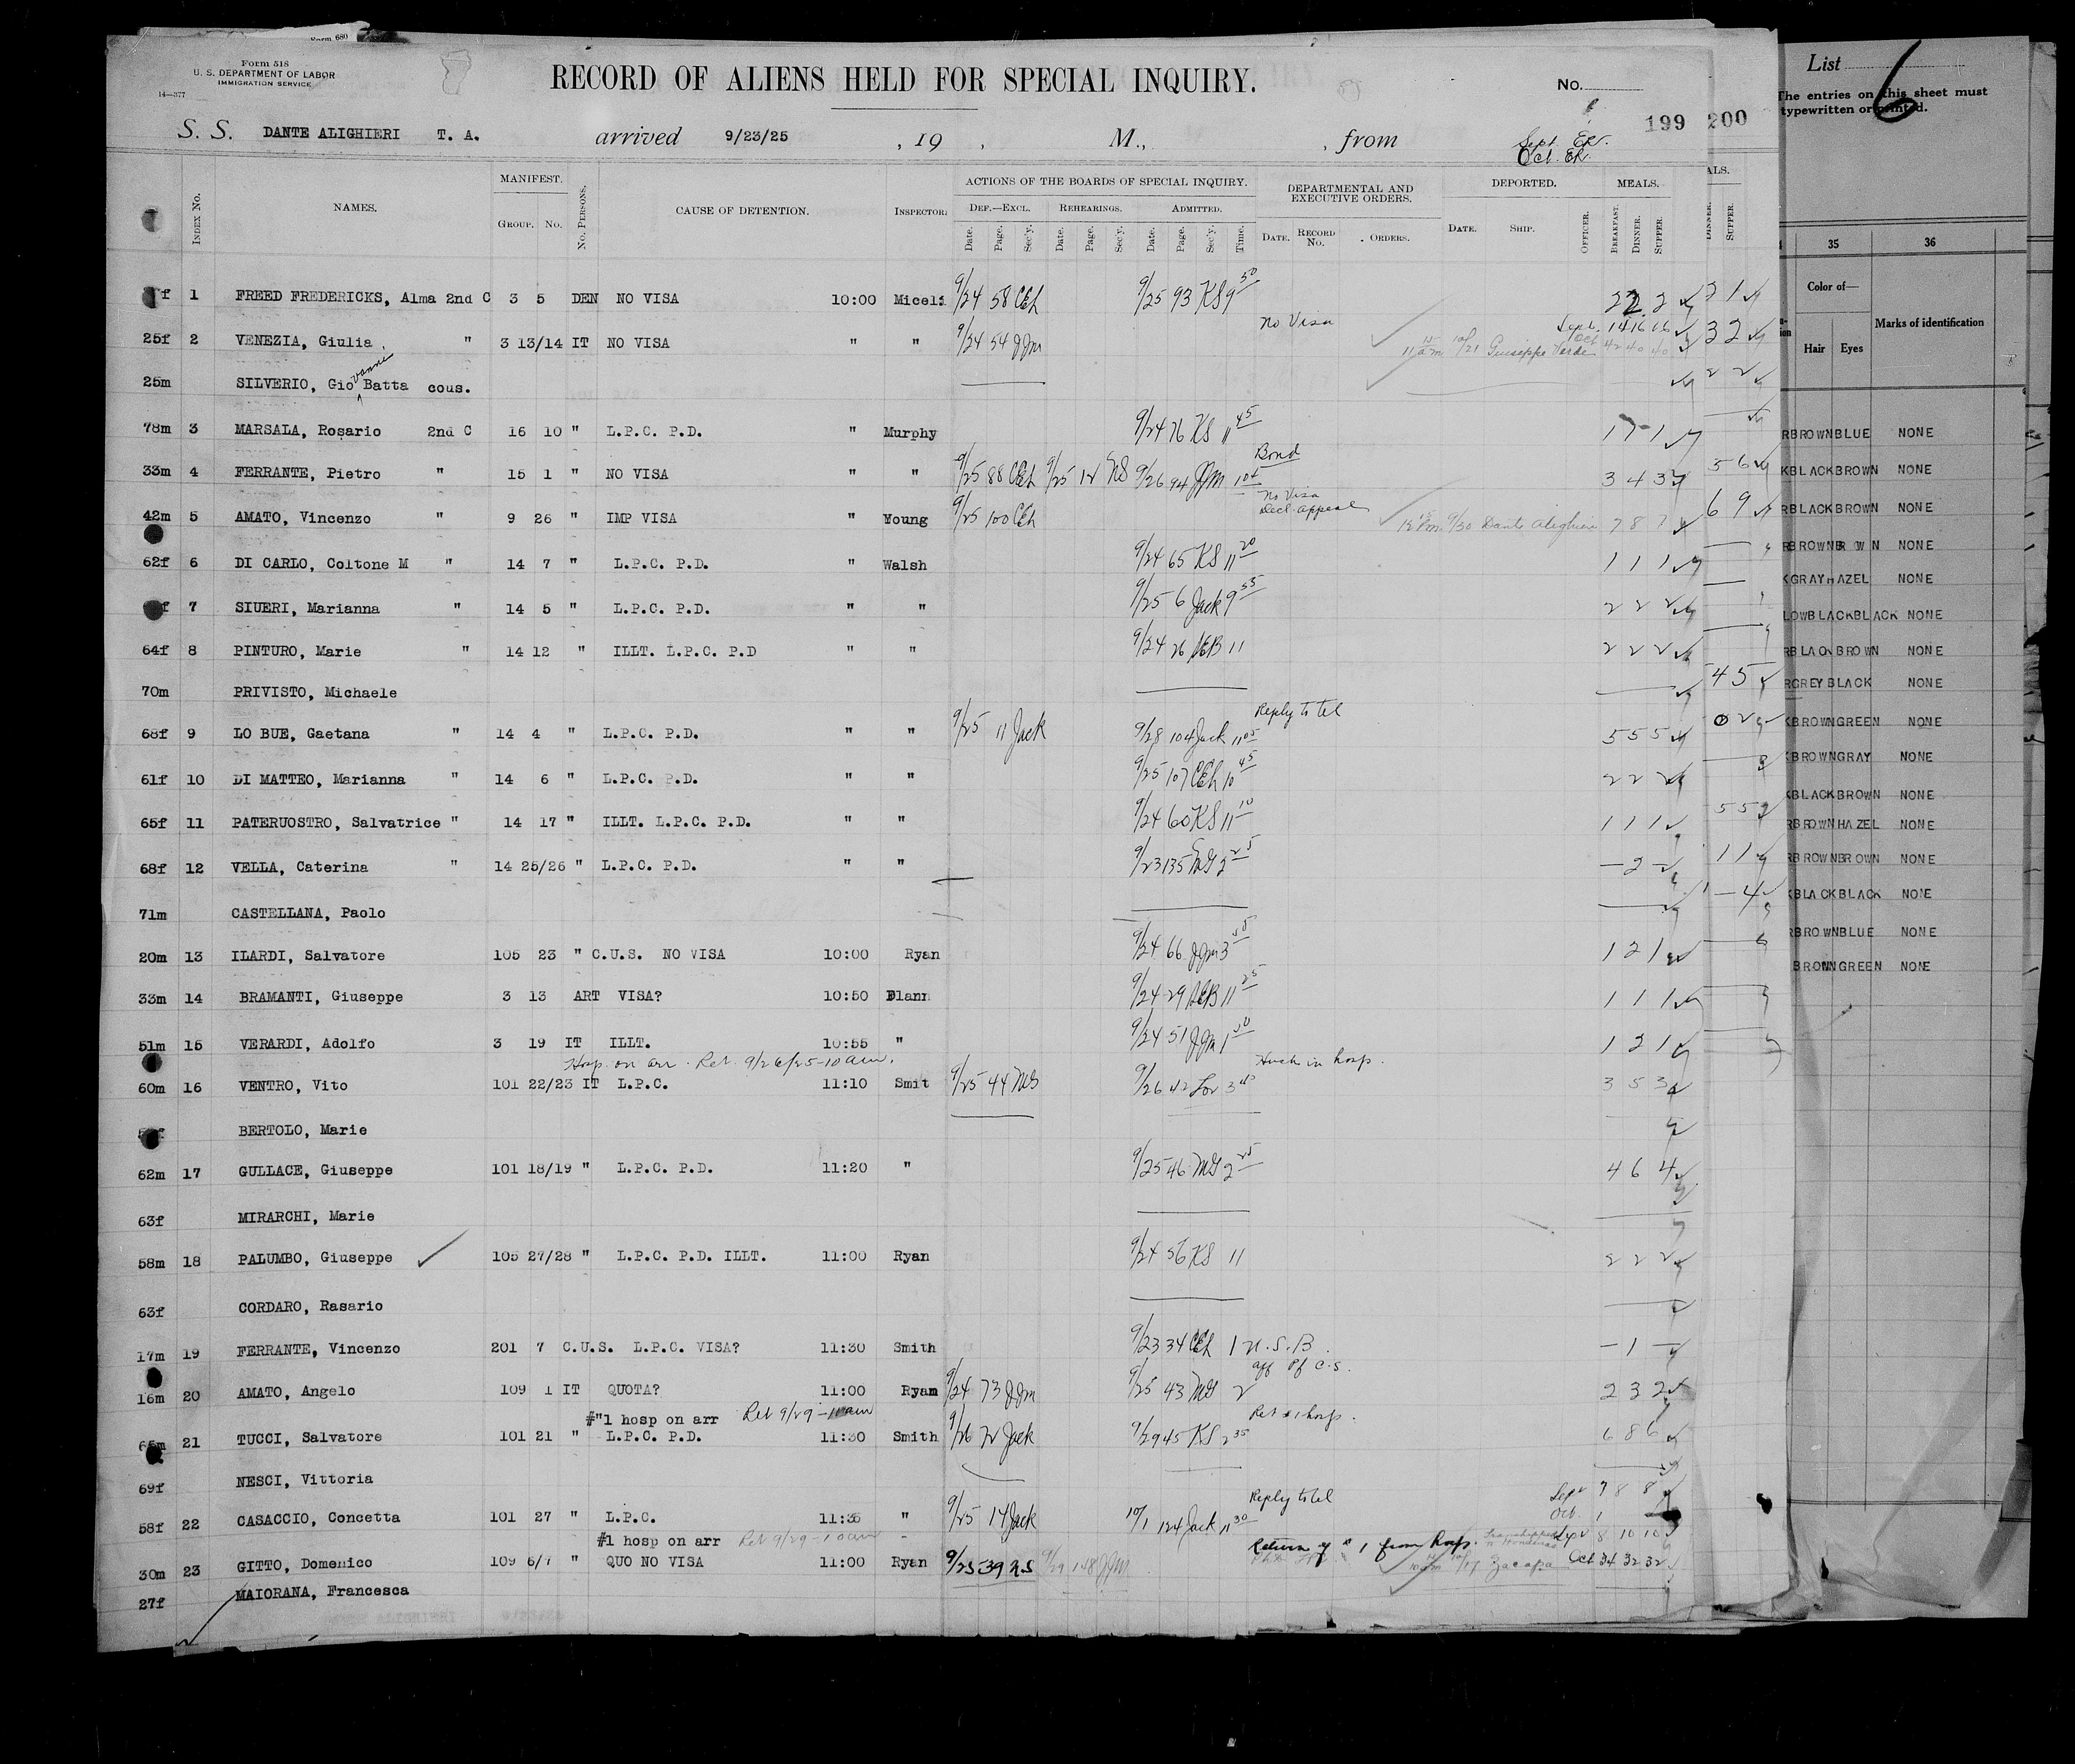 Form 680
Form 518
U. S. DEPARTMENT OF LABOR
IMMIGRATION SERVICE
14—377
RECORD OF ALIENS HELD FOR SPECIAL INQUIRY.
No.
199 200
S. S. DANTE ALIGHIERI T. A. arrived 9/23/25 , 19 , M., , from
Sept. ER.
Oct. ER.
INDEX No. NAMES. MANIFEST. GROUP. No. No. PERSONS. CAUSE OF DETENTION. INSPECTOR.
ACTIONS OF THE BOARDS OF SPECIAL INQUIRY. DEF.—EXCL. REHEARINGS. ADMITTED.
Date. Page. Sec'y. Date. Page. Sec'y. Date. Page. Sec'y. Time.
DEPARTMENTAL AND EXECUTIVE ORDERS. DATE. RECORD No. ORDERS.
DEPORTED. DATE. SHIP. OFFICER. MEALS. BREAKFAST. DINNER. SUPPER.
ALS. DINNER. SUPPER.
f 1 FREED FREDERICKS, Alma 2nd C 3 5 DEN NO VISA 10:00 Miceli 9/24 58 CEL 9/25 93 KS 9 50 2 2 2
No Visa
25f 2 VENEZIA, Giulia " 3 13/14 IT NO VISA " " 9/24 54 JJM 10/21 Guiseppe Verdi Sept. 14 16 16 Oct 42 40 40
25m SILVERIO, Giovanni Batta cous.
78m 3 MARSALA, Rosario 2nd C 16 10 " L.P.C. P.D. " Murphy 9/24 76 KS 11 45 1 1 1
Bond
33m 4 FERRANTE, Pietro " 15 1 " NO VISA " " 9/25 88 CEL 9/25 12 NS 9/26 94 JJM 3 4 3
No Visa
Decl. appeal
42m 5 AMATO, Vincenzo " 9 26 " IMP VISA " Young 9/25 100 CEL 9/30 Dante Alighieri 7 8 7
62f 6 DI CARLO, Coltone M " 14 7 " L.P.C. P.D. " Walsh 9/24 65 KS 11 20 1 1 1
f 7 SIUERI, Marianna " 14 5 " L.P.C. P.D. " " 9/25 6 Jack 9 55 2 2 2
64f 8 PINTURO, Marie " 14 12 " ILLT. L.P.C. P.D " " 9/24 26 AEB 11 2 2 2
70m PRIVISTO, Michaele
Reply to tel
68f 9 LO BUE, Gaetana " 14 4 " L.P.C. P.D. " " 9/25 11 Jack 9/28 104 Jack 11 05 5 5 5
61f 10 DI MATTEO, Marianna " 14 6 " L.P.C. P.D. " " 9/25 107 CEL 10 45 2 2 2
65f 11 PATERUOSTRO, Salvatrice " 14 17 " ILLT. L.P.C. P.D. " " 9/24 60 KS 11 10 1 1 1
68f 12 VELLA, Caterina " 14 25/26 " L.P.C. P.D. " " 9/23 135 MG 2 25 - 2 -
71m CASTELLANA, Paolo
20m 13 ILARDI, Salvatore 105 23 " C.U.S. NO VISA 10:00 Ryan 9/24 66 JJM 3 1 2 1
33m 14 BRAMANTI, Giuseppe 3 13 ART VISA? 10:50 9/24 29 AEB 11 25 1 1 1
51m 15 VERARDI, Adolfo 3 19 IT ILLT. 10:55 " 9/24 51 JJM 1 1 2 1
Hosp. on arr. Ret. 9/26/25-10am.
60m 16 VENTRO, Vito 101 22/23 IT L.P.C. 11:10 Smit 9/25 44 MG 9/26 42 3 5 3
BERTOLO, Marie
62m 17 GULLACE, Giuseppe 101 18/19 " L.P.C. P.D. 11:20 " 9/25 46 MG 2 25 4 6 4
63f MIRARCHI, Marie
58m 18 PALUMBO, Giuseppe 105 27/28 " L.P.C. P.D. ILLT. 11:00 Ryan 9/24 56 KS 11 2 2 2
63f CORDARO, Rasario
17m 19 FERRANTE, Vincenzo 201 7 C.U.S. L.P.C. VISA? 11:30 Smith 9/23 34 CEL 1 U.S.B. - 1 -
16m 20 AMATO, Angelo 109 1 IT QUOTA? 11:00 Ryan 9/24 73 JJM 9/25 43 MG 2 2 3 2
#"1 hosp on arr Ret 9/29-11am
21 TUCCI, Salvatore 101 21 " L.P.C. P.D. 11:30 Smith 9/26 72 Jack 9/29 45 KS 2 35 6 8 6
69f NESCI, Vittoria
Reply to tel
58f 22 CASACCIO, Concetta 101 27 " L.P.C. 11:35 " 9/25 14 Jack 10/1 124 Jack 11 30 Sept 7 8 8 Oct. 1
#1 hosp on arr Ret 9/29-10am Return of #1 from hosp.
30m 23 GITTO, Domenico 109 6/7 " QUO NO VISA 11:00 Ryan 9/25 39 NS 9/29 148 JJM 10/17 Zacapa Sept 8 10 10 Oct 34 32 32
27f MAIORANA, Francesca
List 6
The entries on this sheet must
typewritten or printed.
35 36
Color of—
Hair Eyes Marks of identification
BROWN BLUE NONE
BLACK BROWN NONE
BLACK BROWN NONE
BROWN BROWN NONE
GRAY HAZEL NONE
BLACK BLACK NONE
BLACK BROWN NONE
GREY BLACK NONE
BROWN GREEN NONE
BROWN GRAY NONE
BLACK BROWN NONE
BROWN HAZEL NONE
BROWN BROWN NONE
BLACK BLACK NONE
BROWN BLUE NONE
BROWN GREEN NONE